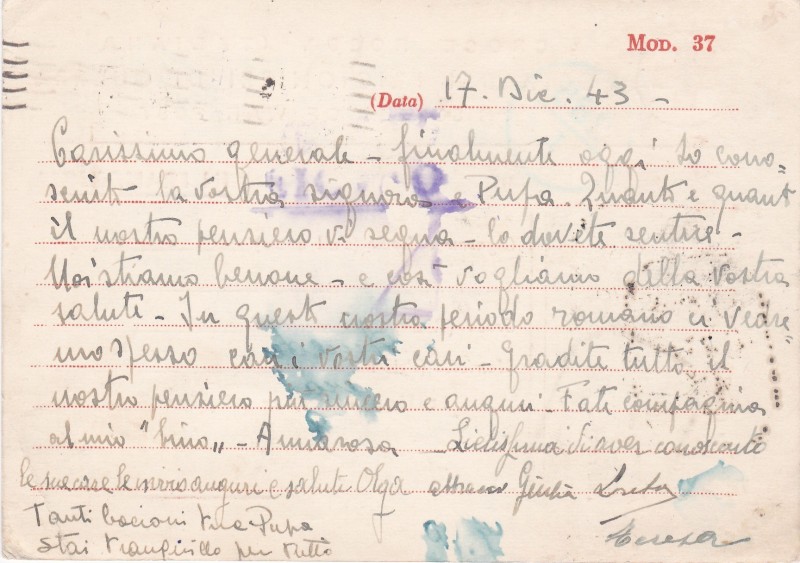 MOD. 37
(Data) 17. Dic. 43 -
Carissimo generale - finalmente oggi ho cono-
sciuto la vostra signora e Pupa. Quanto e quanto
il nostro pensiero vi segua - lo dovete sentire -
Noi stiamo benone - e così vogliamo della vostra
salute - In questo nostro periodo romano ci vedre
mo spesso con i vostri cari - Gradite tutto, il
nostro pensiero più sincero e auguri. Fate compagnia
al mio " " - Annarosa Lietissima di aver conosciuto
le sue care le invio auguri e saluti Olga Giulia
Tanti bacioni tua Pupa
Stai tranquillo per tutto
Teresa